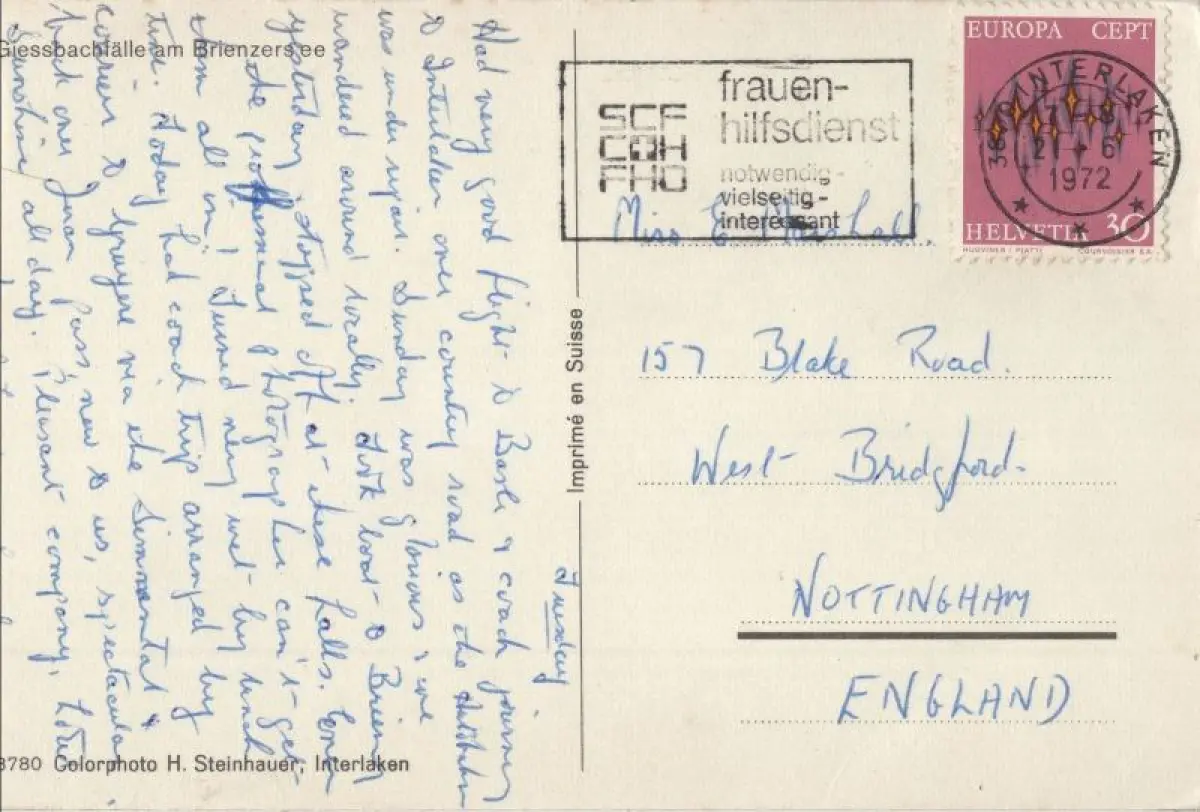 Giessbachfälle am Brienzersee
Tuesday
Had very good flight to Basle & coach journey
to Interlaken over country road as the Autobahn
was under repair. Sunday was glorious & we
wandered around locally. Took boat to Brienz
yesterday & stopped off at these falls. Even
the professional photographer can't get
them all in! Turned very wet by lunch
time. Today had coach trip arranged by
couriers to Gruyere via the Simmental &
back over Jaun Pass, new to us, spectacular,
Sunshine all day. Pleasant company,
3780 Colorphoto H. Steinhauer, Interlaken
Imprimé en Suisse
SCF
CH
FHD
frauen-
hilfsdienst
notwendig-
vielseitig-
interessant
EUROPA CEPT
HELVETIA 30
COURVOISIER S.A.
3800 INTERLAKEN
21 6
1972
Miss E. Marshall.
157 Blake Road.
West Bridgford.
NOTTINGHAM
ENGLAND